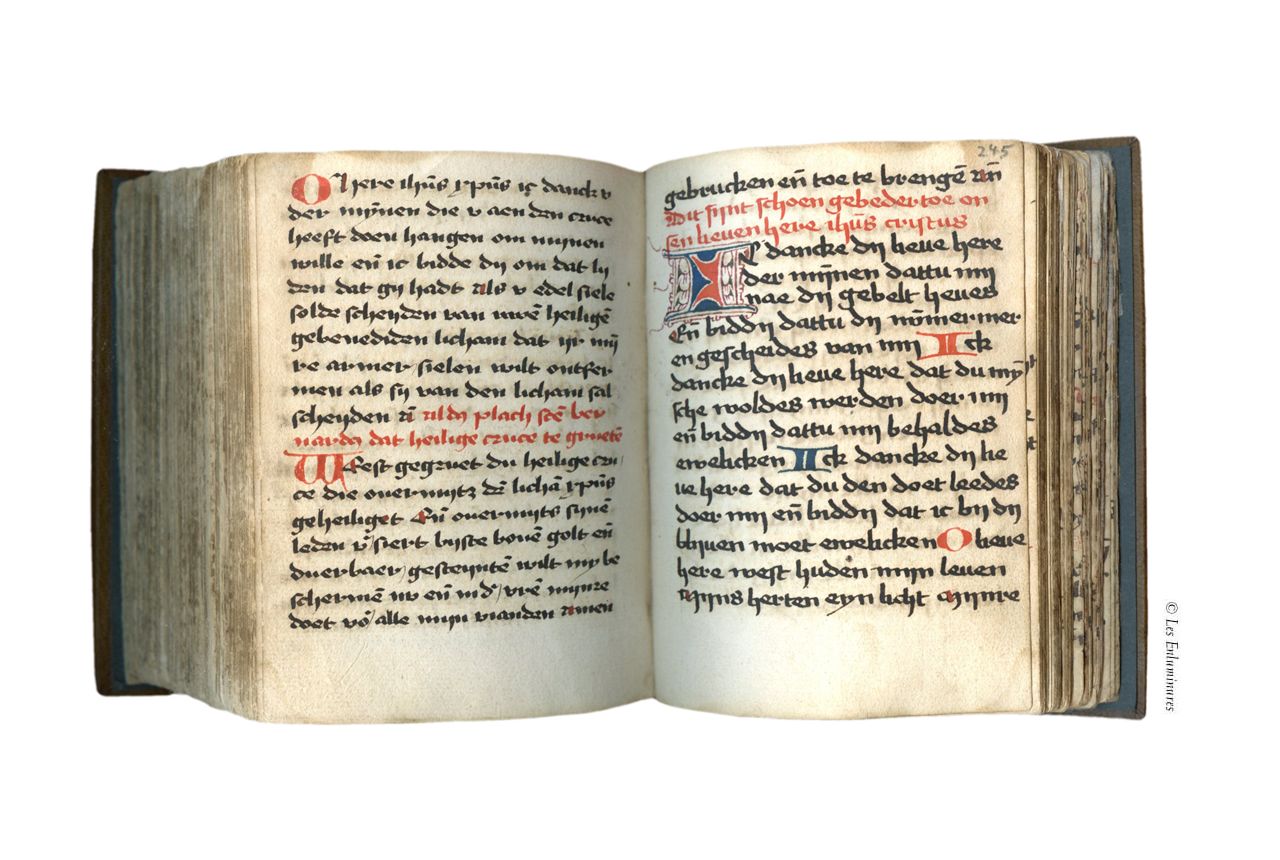 O here ihūs xpūs ic danck v
der mȳnen die v aen den cruce
heeft doen hangen om mijnen
wille eñ ic bidde dij om dat lij
den dat gij hadt als v edel siele
solde scheyden van uwē heiligē
gebenediden licham dat ijr mij
re armer sielen wilt ontfer
men als sij van den licham sal
scheyden
plach
dat heilige cruce te gruetē
West gegruet du heilige cru
ce die ouermijtz lichā xpūs
geheiliget Eñ ouermijts sijnē
leden bouē golt eñ
duerbaer gesteyntē wilt my be
schermē nv eñ mijnre
doet alle mijn vianden amen
245
gebrucken eñ toe te brengē
Dit sijnt schoen gebeder toe on
sen lieuen here ihūs cristus
IC dancke dij lieue here
der mȳnen dattu mij
nae dij gebelt heues
Eñ bid dij dattu dij nūmermer
en gescheides van mij Ick
dancke dij lieue here dat du mȳ
sche woldes werden doer mij
eñ bid dij dattu mij behaldes
ewelicken Ick dancke dij lie
ue here dat du den doet leedes
doer mij eñ bid dij dat ic bij dij
blijuen moet ewelicken O lieue
here west huden mijn leuen
mijns herten eyn licht mijnre
© Les Enluminures